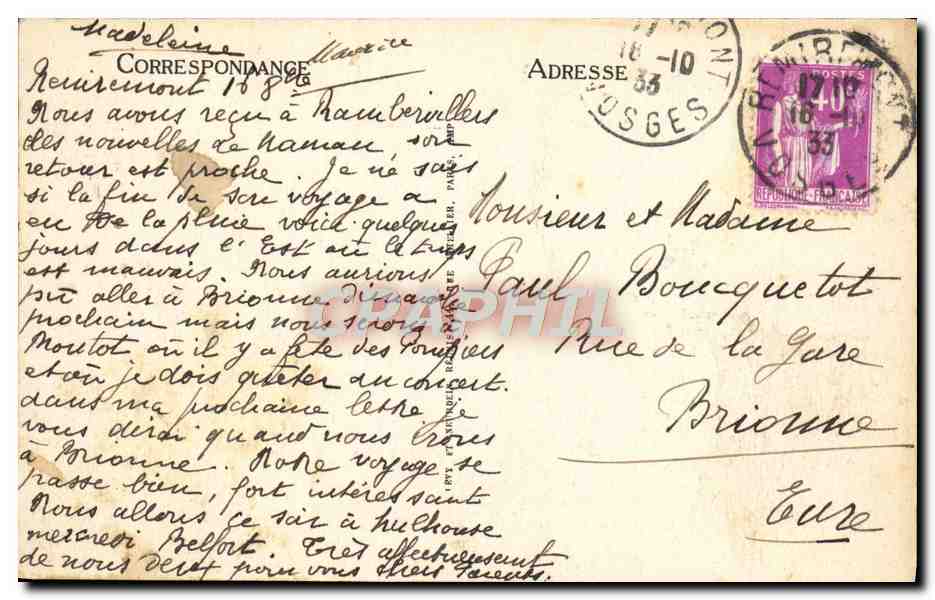 Madeleine
Maurice
CORRESPONDANCE
Remiremont 16 8bre
Nous avons reçu à Rambervillers
des nouvelles de Maman son
retour est proche. Je ne sais
si la fin de son voyage a
eu de la pluie voici quelques
jours dans l'Est où le temps
est mauvais. Nous aurions
pu aller à Brionne dimanche
prochain mais nous serons à
Montot où il y a fête des Pompiers
et où je dois quêter au concert.
dans ma prochaine lettre je
vous dirai quand nous irons
à Brionne. Notre voyage se
passe bien, fort intéressant
Nous allons ce soir à Mulhouse
mercredi Belfort. Très affectueusement
de nous deux pour vous chers Parents.
ADRESSE
Monsieur et Madame
Paul Boucquetot
Rue de la Gare
Brionne
Eure
16-10
33
VOSGES
REMIREMONT
17 10
16-10
33
VOSGES
POSTES
40
RÉPUBLIQUE-FRANÇAISE
CRAPHIL